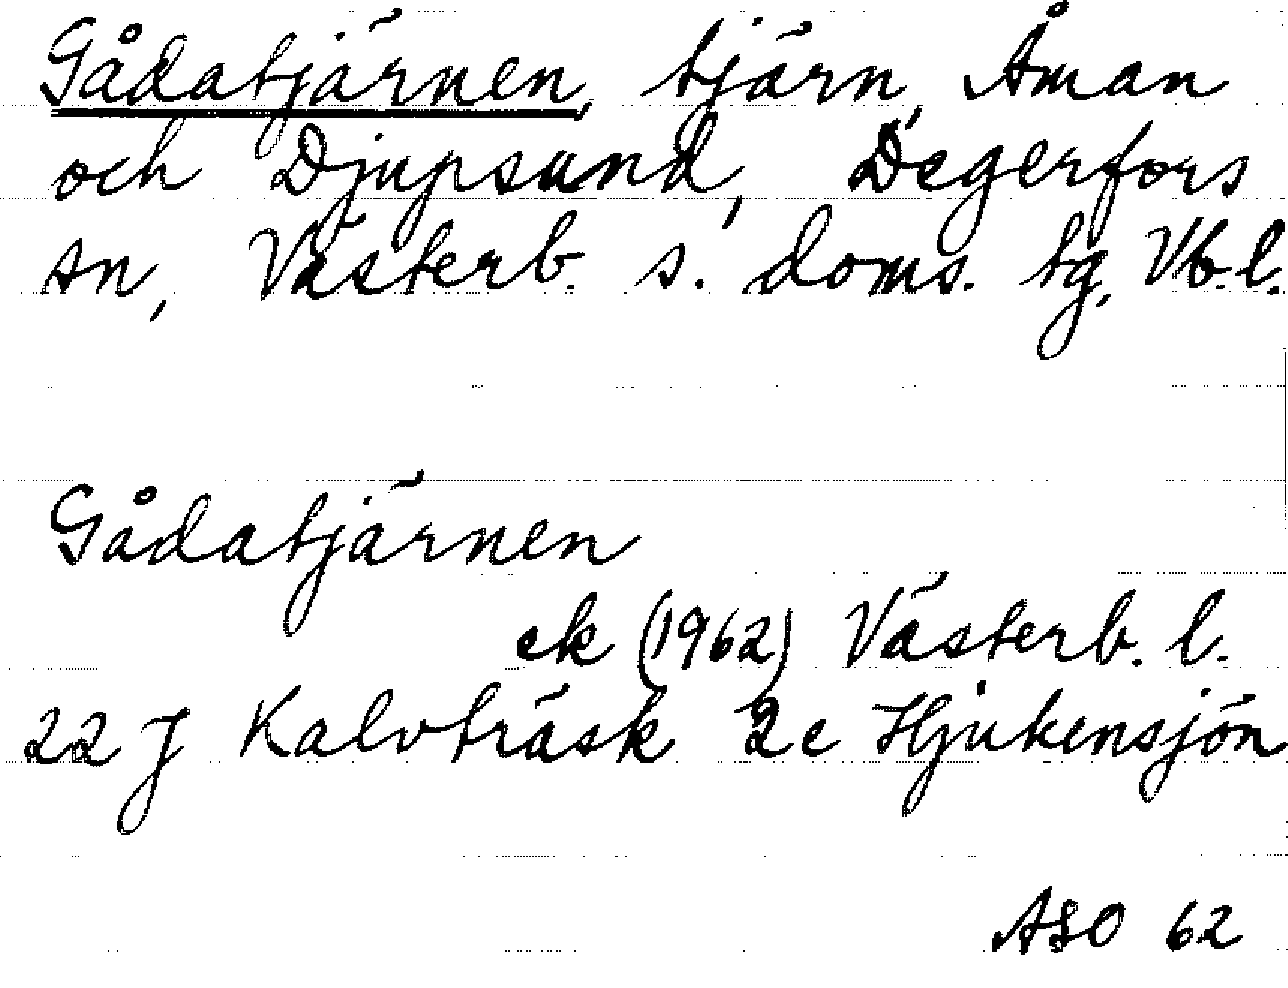 Gådatjärnen, tjärn, Åman
och Djupsund, Degerfors
sn, Västerb. s. doms. tg, Vb.l.
Gådatjärnen
ek (1962) Västerb. l.
22 J Kalvträsk 2e Hjukensjön
ASO 62